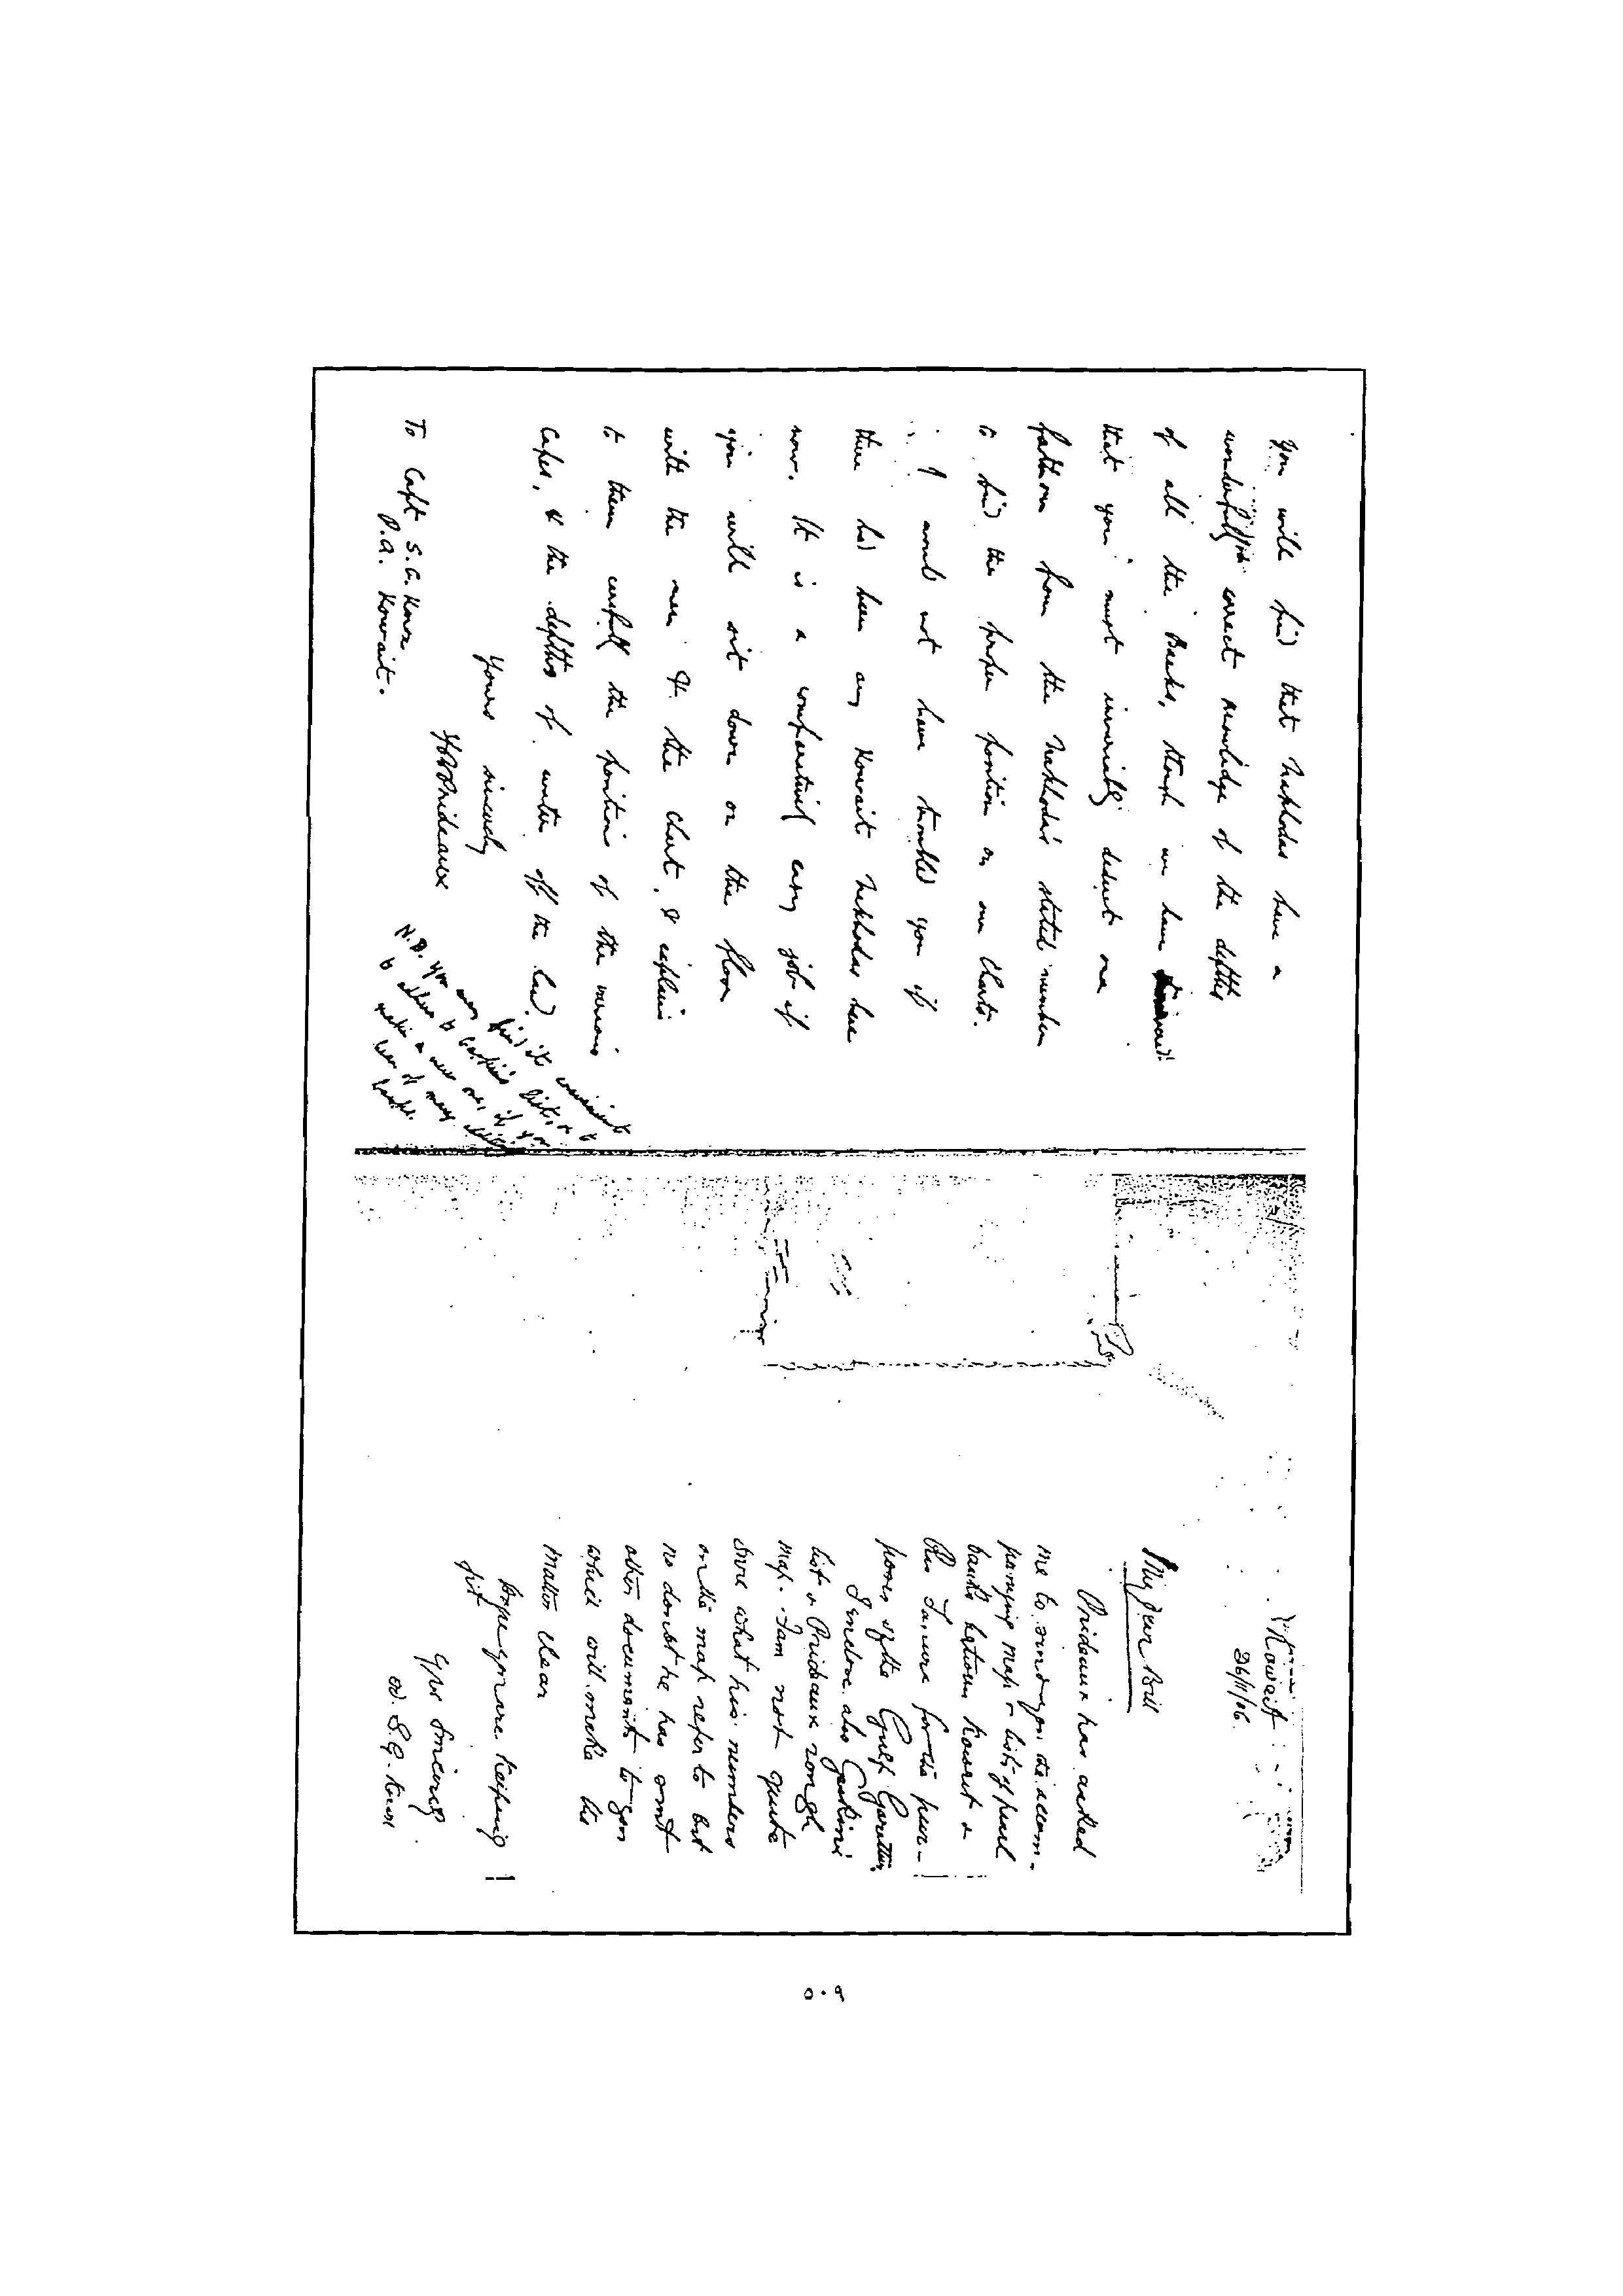 You will find that Nakhodas have a
wonderfully correct knowledge of the depths
of all the Banks, though we have
that you must invariably deduct one
fathom from the Nakhoda's stated number
to find the proper position on our charts.
I would not have troubled you if
there had been any Kowait Nakhodas here
now. It is a comparatively easy job if
you will sit down on the floor
with the men & the chart, & explain
to them carefully the positions of the various
Capes, & the depths of water off the land.
Yours sincerely
Prideaux
To Capt S.G. Knox
P.A. Kowait.
N.B. You may find it convenient
to adhere to Gaskin's list, or to
make a new one, if you
hear of many
banks.
Kowait
26/11/06
My dear Bill
Prideaux has asked
me to send you the accom-
panying map & list of pearl
banks between Kowait &
Ras Tanura for the pur-
poses of the Gulf Gazetteer.
I enclose also Gaskin's
list & Prideaux rough
map. I am not quite
sure what his numbers
on the map refer to but
no doubt he has sent
other documents to you
which will make the
matter clear
Hope you are keeping
fit
Yours sincerely
S.G. Knox
٥٠٩